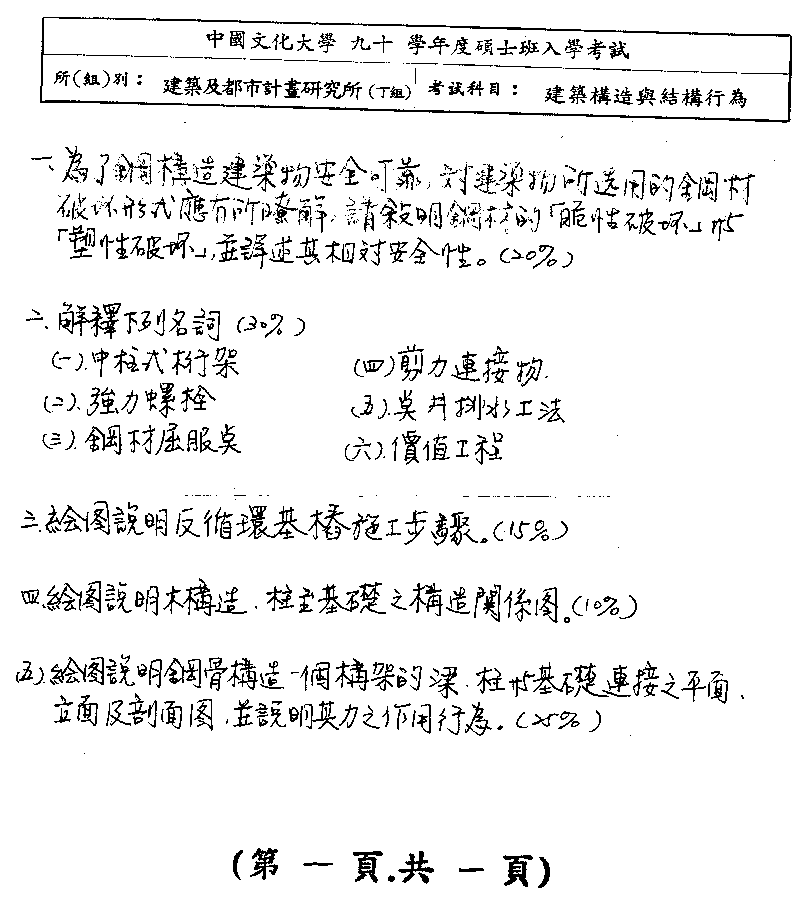 中國文化大學 九十 學年度碩士班入學考試
所(組)別： 建築及都市計畫研究所(丁組) 考試科目： 建築構造與結構行為
一、為了鋼構造建築物安全可靠，對建築物所选用的鋼材
破坏形式應有所瞭解，請敘明鋼材的「脆性破坏」与
「塑性破坏」，並詳述其相对安全性。(20%)
二、解釋下列名詞(30%)
(一).中柱式桁架 (四)剪力連接物.
(二).強力螺栓 (五).点井排水工法
(三).鋼材屈服点 (六).價值工程
三.绘图說明反循環基樁施工步驟。(15%)
四.絵图說明木構造、柱至基礎之構造關係图。(10%)
五)絵图說明鋼骨構造一個構架的梁、柱与基礎連接之平面、
立面及剖面图，並說明其力之作用行為。(25%)
(第 一 頁.共 一 頁)